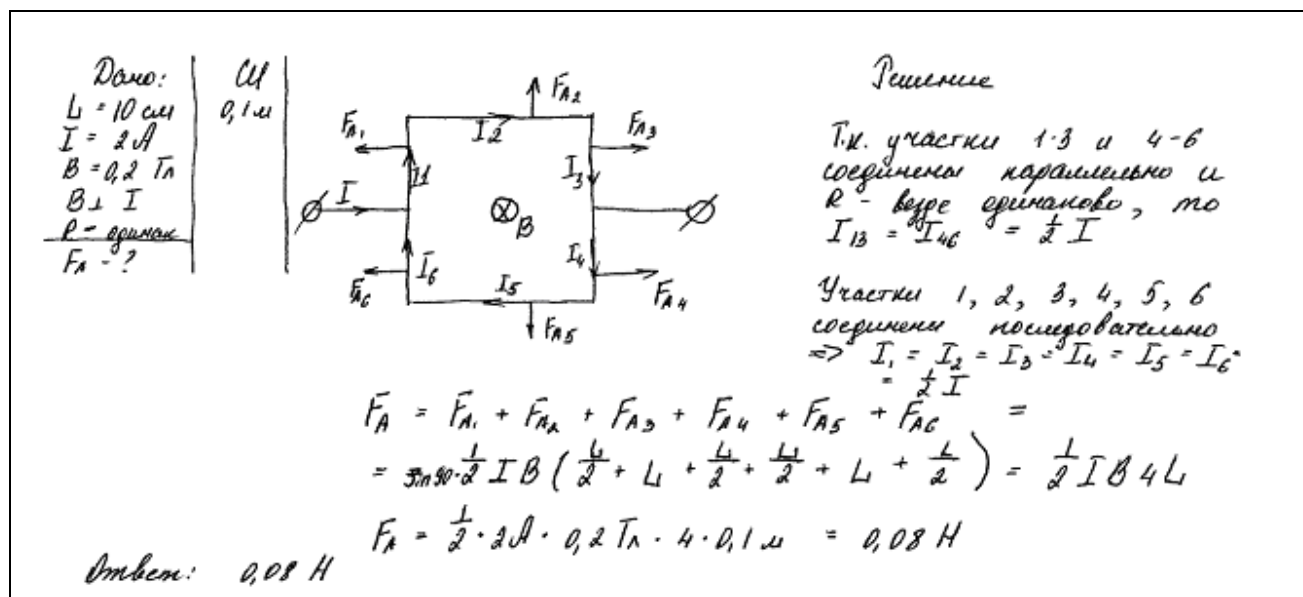 Дано:
L = 10 см
I = 2 А
B = 0,2 Тл
B ⊥ I
R - одинак
Fл - ?
СИ
0,1 м
FА1
FА2
FА3
I
I1
I2
I3
B
I6
I5
I4
FА6
FА5
FА4
Решение
Т.к. участки 1-3 и 4-6
соединены параллельно и
R - везде одинаково, то
I13 = I46 = 1/2 I
Участки 1, 2, 3, 4, 5, 6
соединени последовательно
=> I1 = I2 = I3 = I4 = I5 = I6 =
= 1/2 I
FА = FА1 + FА2 + FА3 + FА4 + FА5 + FА6 =
= sin90 · 1/2 I B ( L/2 + L + L/2 + L/2 + L + L/2 ) = 1/2 I B 4 L
FА = 1/2 · 2А · 0,2 Тл · 4 · 0,1 м = 0,08 Н
Ответ: 0,08 Н